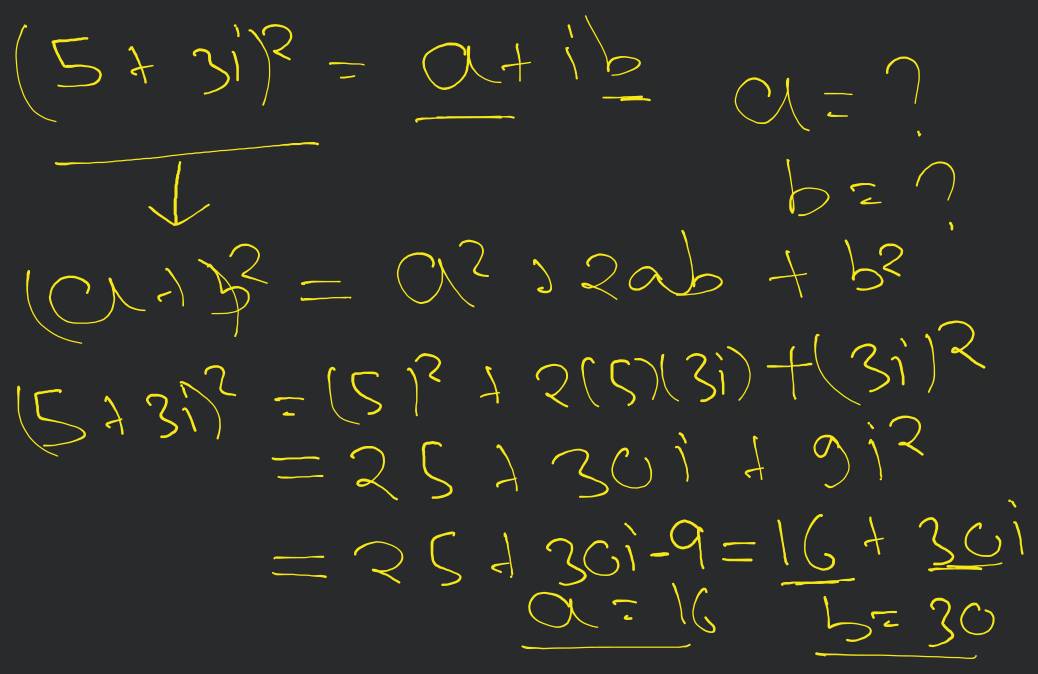 (5 + 3i)² = a + ib
a = ?
b = ?
(a + b)² = a² + 2ab + b²
(5 + 3i)² = (5)² + 2(5)(3i) + (3i)²
= 25 + 30i + 9i²
= 25 + 30i - 9 = 16 + 30i
a = 16 b = 30